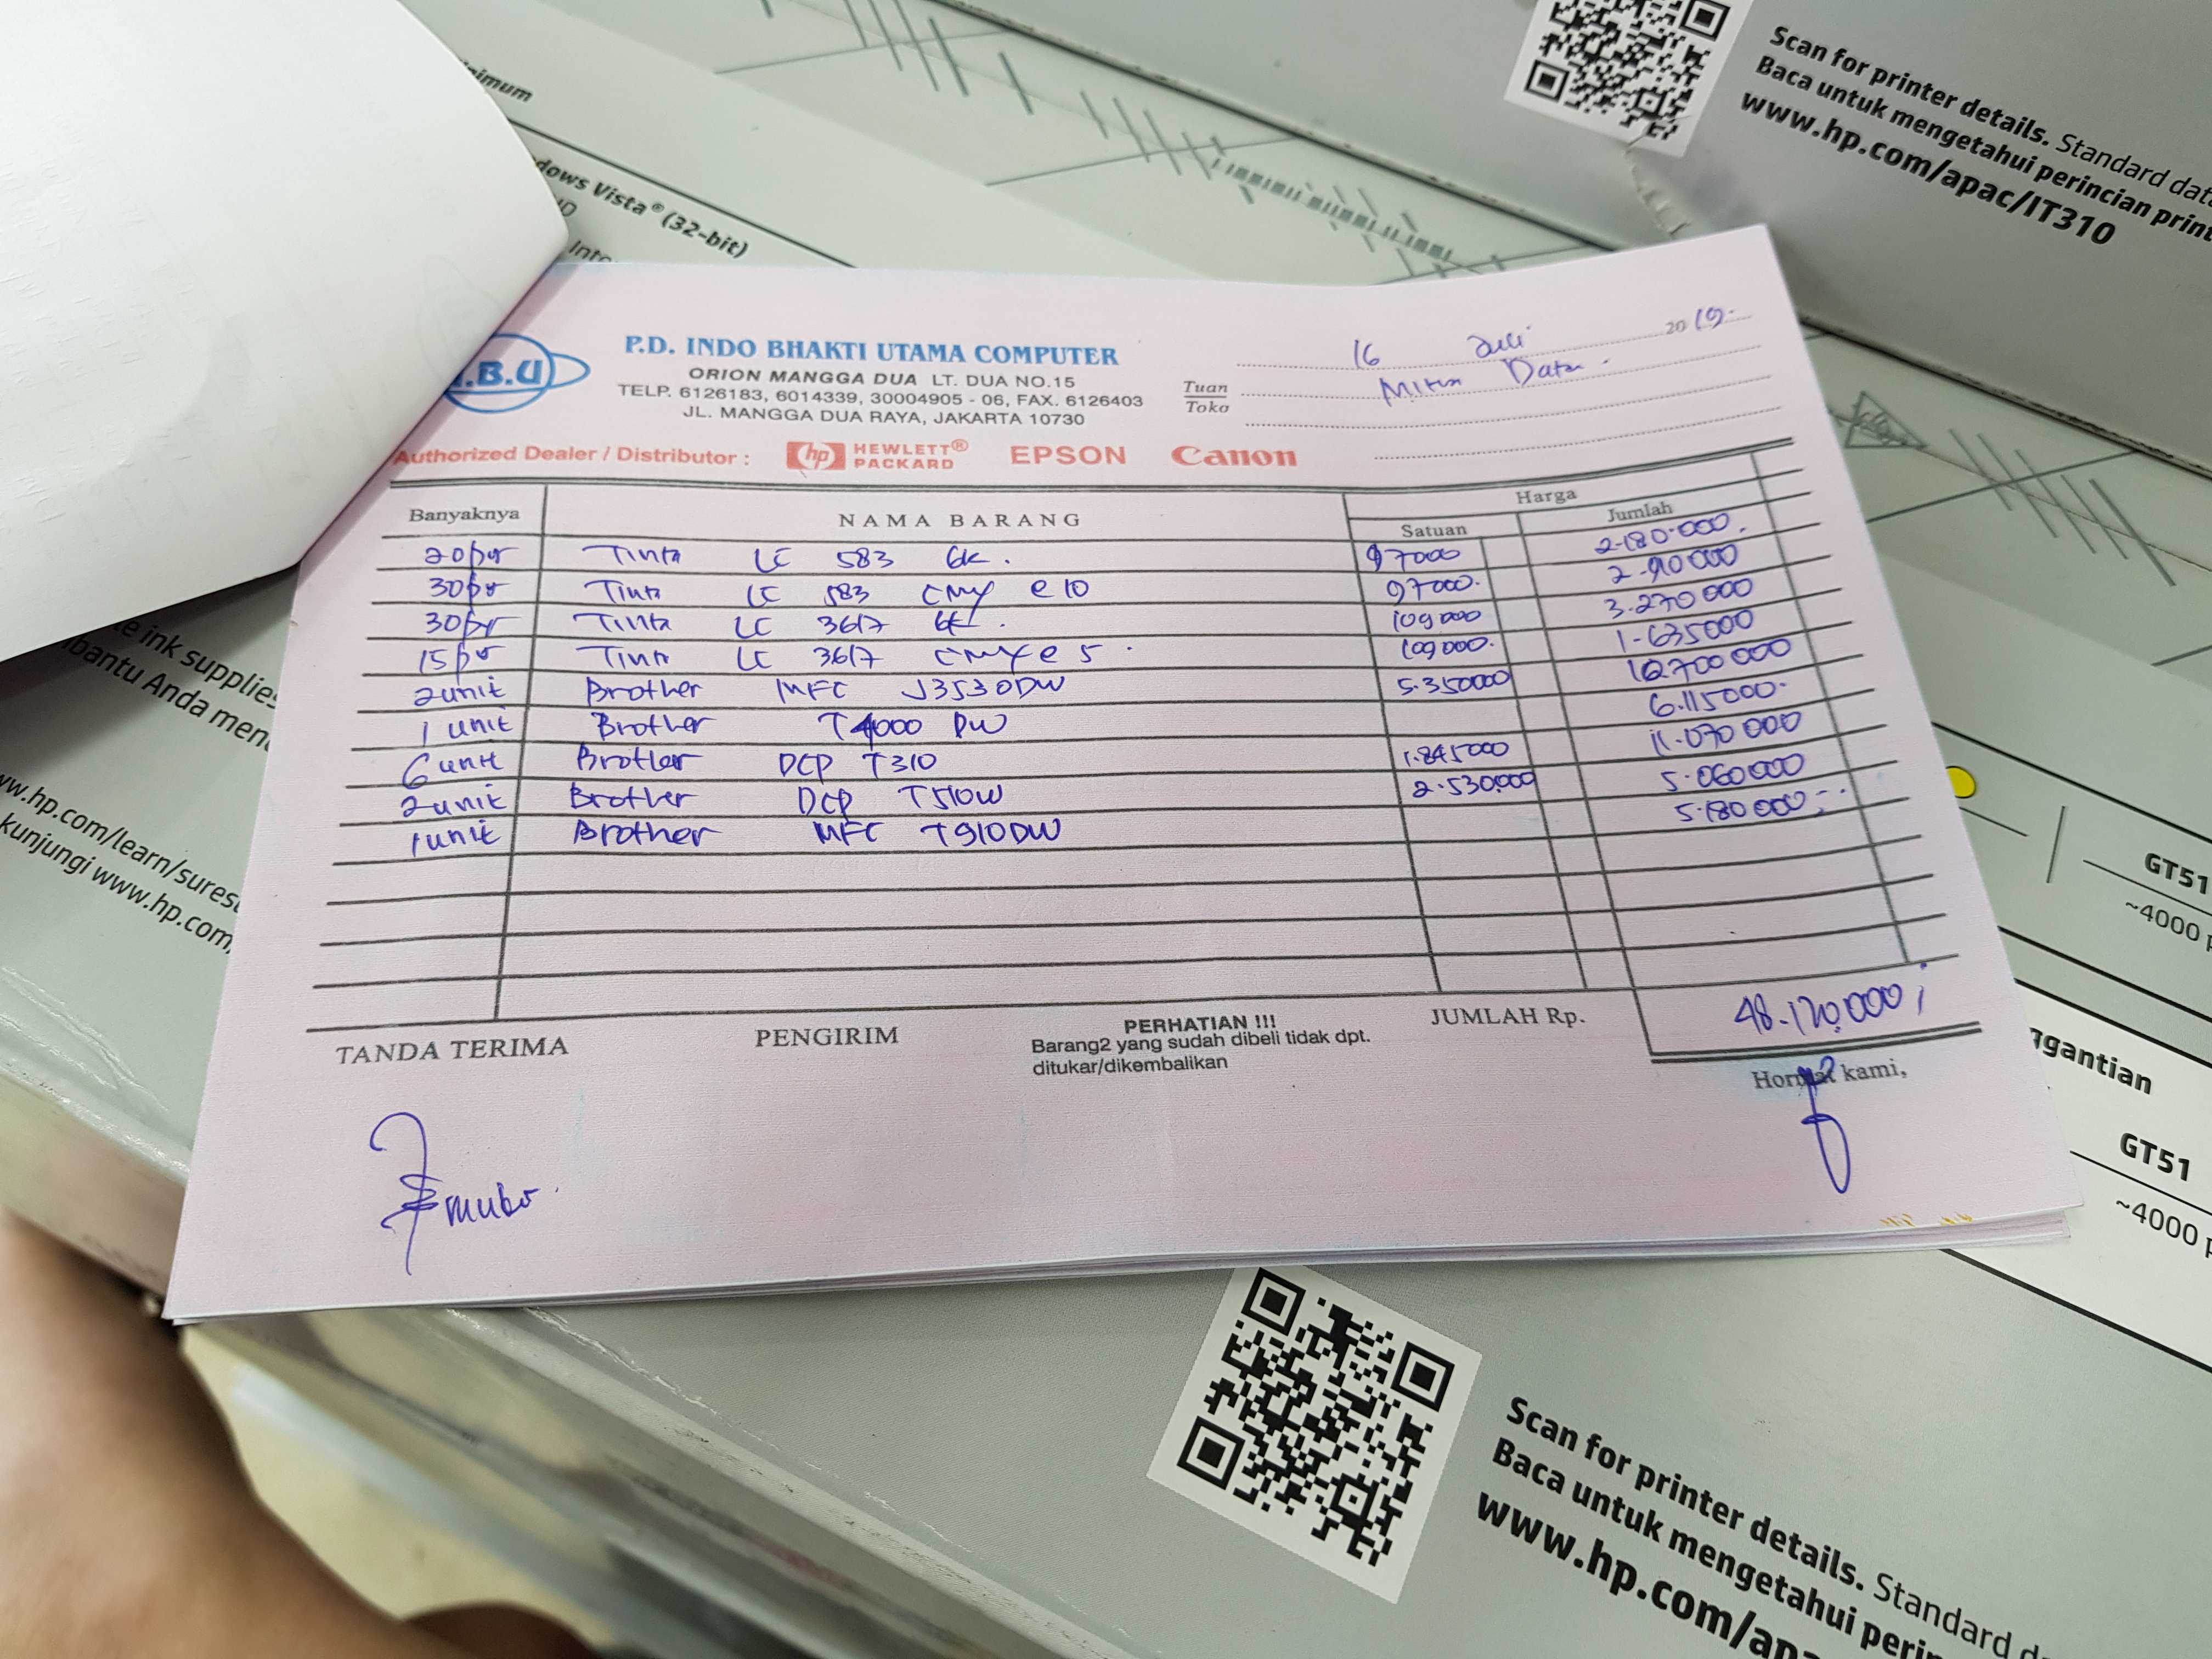 Scan for printer details. Standard dat
Baca untuk mengetahui perincian print
www.hp.com/apac/IT310
nimum
dows Vista® (32-bit)
Inte
P.D. INDO BHAKTI UTAMA COMPUTER
ORION MANGGA DUA LT. DUA NO.15
TELP. 6126183, 6014339, 30004905 - 06, FAX. 6126403
JL. MANGGA DUA RAYA, JAKARTA 10730
.B.U
16 Juli 2019.
Tuan
Toko
Mitra Data.
Authorized Dealer / Distributor : hp HEWLETT® PACKARD EPSON Canon
Banyaknya NAMA BARANG Harga
Satuan Jumlah
20 Tinta LC 583 bk. 97000 2.180.000.
30 Tinta LC 583 CMY e 10 97000. 2.910000
30 Tinta LC 3617 bk. 109000 3.270000
15 Tinta LC 3617 CMY e 5. 109000. 1.635000
2unit Brother MFC J3530DW 5.350000 10.700000
1 unit Brother T4000 DW 6.115000.
6 unit Brother DCP T310 1.845000 11.070000
2unit Brother DCP T510W 2.530.000 5.060000
1unit Brother MFC T910DW 5.180000
JUMLAH Rp. 48.120.000
TANDA TERIMA PENGIRIM PERHATIAN !!!
Barang2 yang sudah dibeli tidak dpt.
ditukar/dikembalikan
Hormat kami,
te ink supplies
bantu Anda men
ww.hp.com/learn/sures
kunjungi www.hp.com,
GT51
~4000 p
ggantian
GT51
~4000 p
Scan for printer details. Standard d
Baca untuk mengetahui perin
www.hp.com/ap